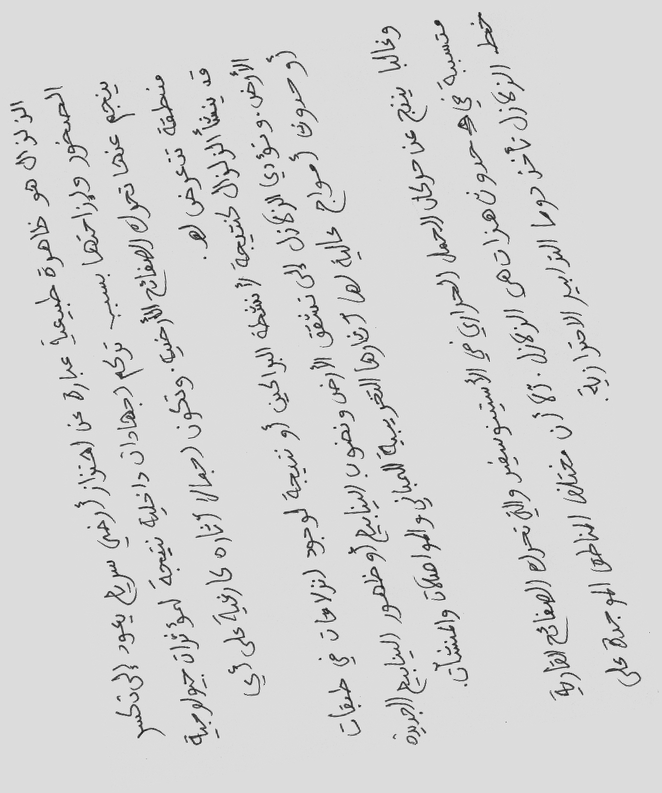 الزلزال هو ظاهرة طبيعية عبارة عن اهتزاز أرضي سريع يعود إلى تكسر
الصخور وإزاحتها بسبب تركم إجهادات داخلية نتيجة لمؤثرات جيولوجية
ينجم عنها تحرك الصفائح الأرضية. وتكون إجمالا آثاره كارثية على أي
منطقة تتعرض له.
قد ينشأ الزلزال كنتيجة لأنشطة البراكين أو نتيجة لوجود انزلاقات في طبقات
الأرض. وتؤدي الزلازل إلى تشقق الأرض ونضوب الينابيع أو ظهور الينابيع الجديدة
أو حدوث أمواج عالية لها آثارها التخريبية للمباني والمواصلات والمنشآت.
وغالبا ينتج عن حركات الحمل الحراري في الأستينوسفير والتي تحرك الصفائح القارية
متسببة في حدوث هزات هي الزلازل. كما أن مختلف المناطق الموجودة على
خط الزلازل تأخذ دوما التدابير الاحترازية.